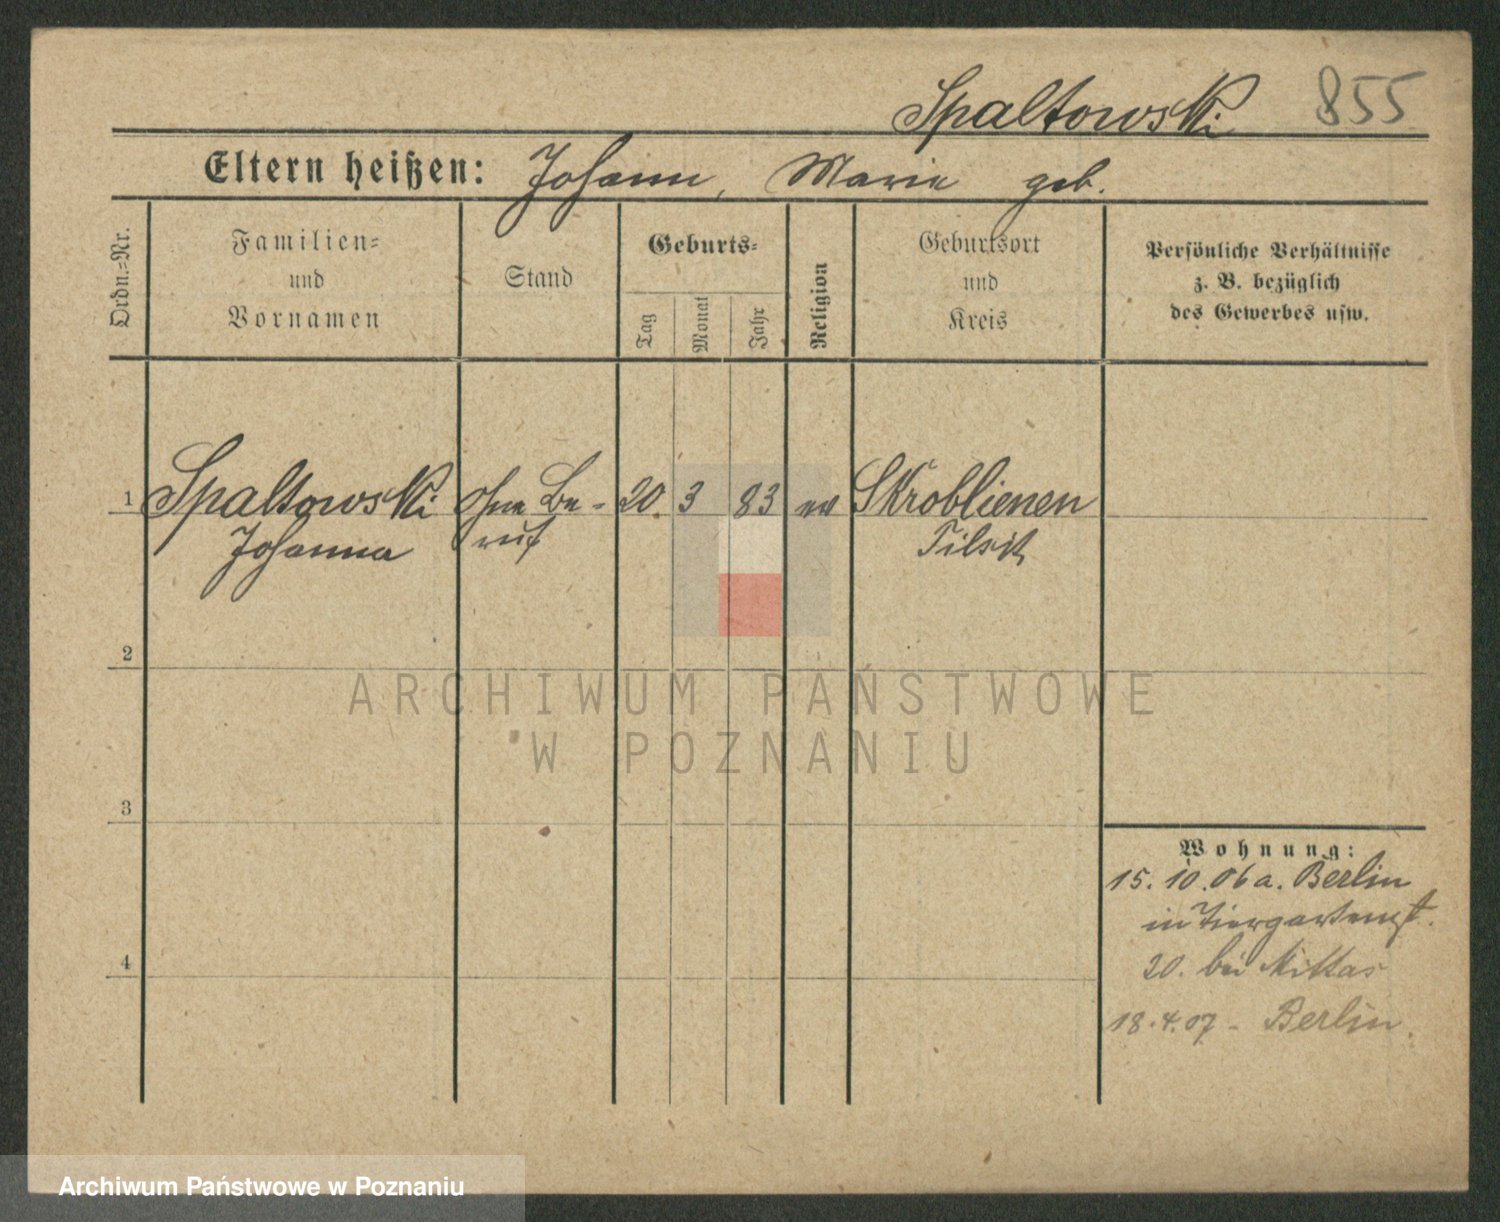 Spaltowski 855
Eltern heißen: Johann, Marie geb.
Ordn.-Nr.
Familien-
und
Vornamen
Stand
Geburts-
Tag
Monat
Jahr
Religion
Geburtsort
und
Kreis
Persönliche Verhältnisse
z. B. bezüglich
des Gewerbes usw.
1 Spaltowski ohne Be- 20. 3 83 ev Skroblienen
Johanna ruf Tilsit
2
ARCHIWUM PAŃSTWOWE
W POZNANIU
3
Wohnung:
15. 10. 06 a. Berlin
in Tiergartenst.
20. bei Mittas
4
18.4.07 - Berlin.
Archiwum Państwowe w Poznaniu